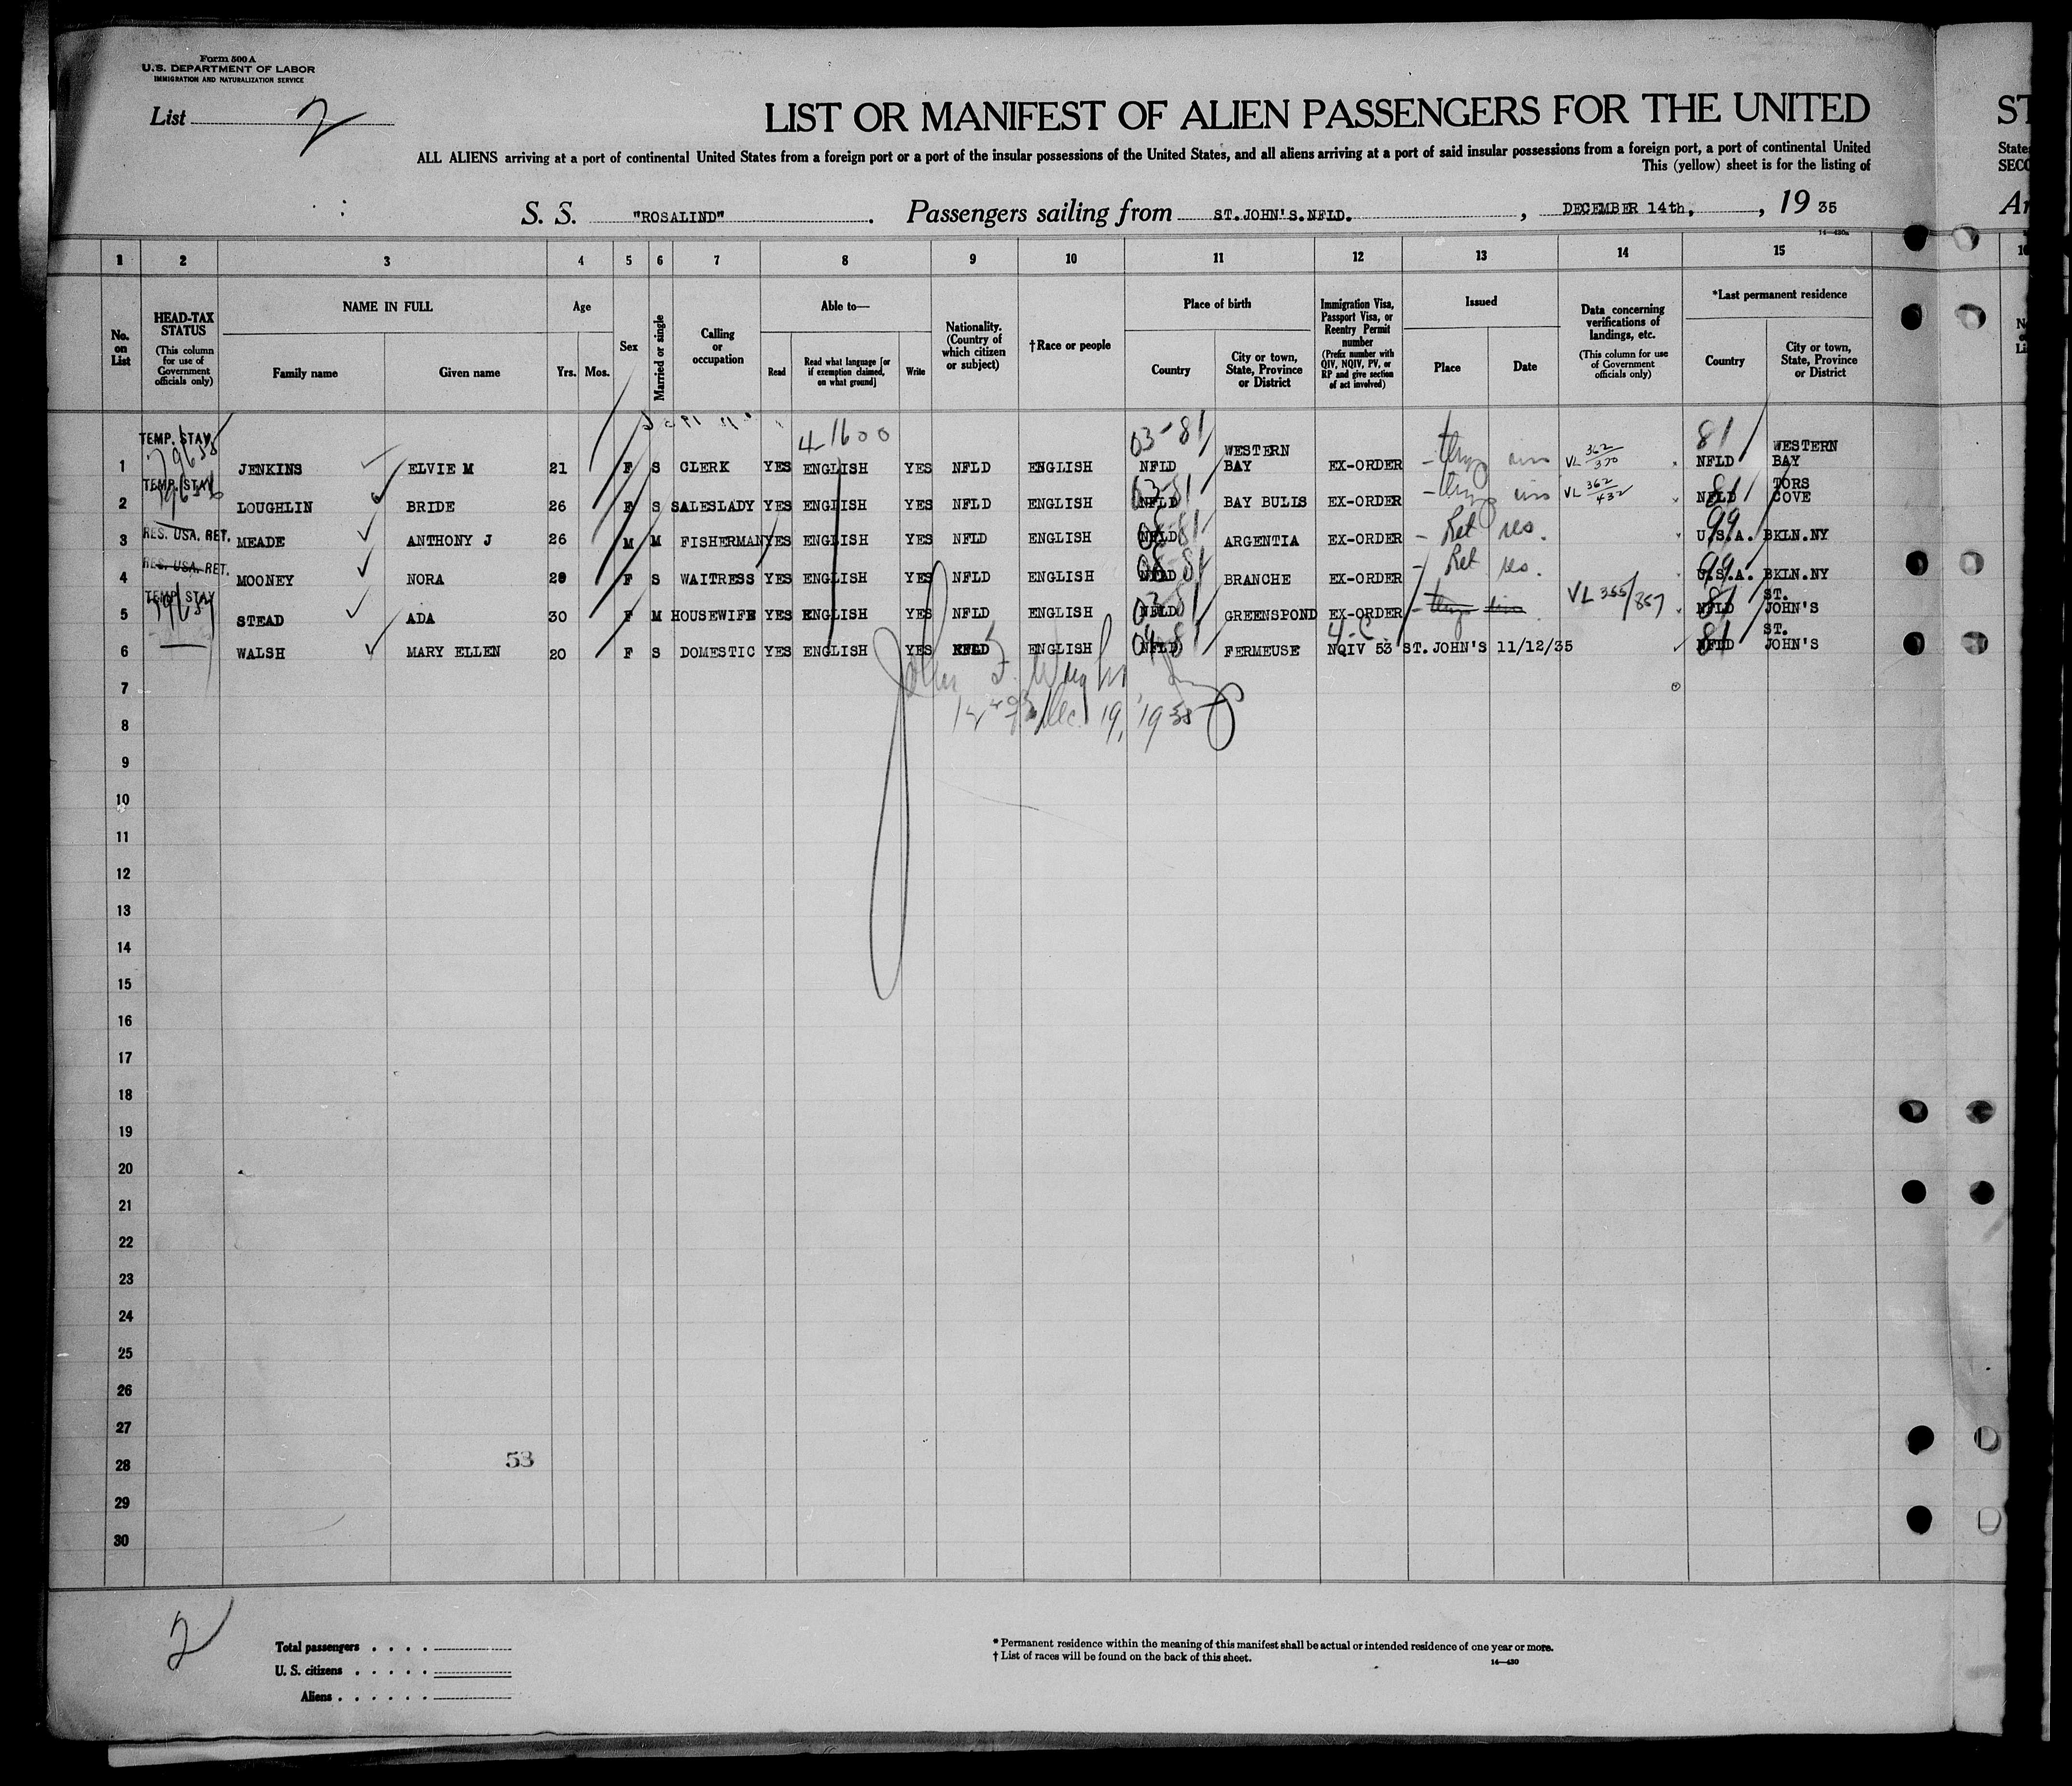 Form 500 A
U.S. DEPARTMENT OF LABOR
IMMIGRATION AND NATURALIZATION SERVICE
List 2
LIST OR MANIFEST OF ALIEN PASSENGERS FOR THE UNITED
ST
ALL ALIENS arriving at a port of continental United States from a foreign port or a port of the insular possessions of the United States, and all aliens arriving at a port of said insular possessions from a foreign port, a port of continental United
State
This (yellow) sheet is for the listing of
SECO
S. S. "ROSALIND" . Passengers sailing from ST.JOHN'S.NFLD. , DECEMBER 14th, , 19 35
14—430a
1 2 3 4 5 6 7 8 9 10 11 12 13 14 15
No. on List
HEAD-TAX STATUS
(This column for use of Government officials only)
NAME IN FULL
Family name
Given name
Age
Yrs. Mos.
Sex
Married or single
Calling or occupation
Able to—
Read
Read what language [or if exemption claimed, on what ground]
Write
Nationality. (Country of which citizen or subject)
†Race or people
Place of birth
Country
City or town, State, Province or District
Immigration Visa, Passport Visa, or Reentry Permit number
(Prefix number with QIV, NQIV, PV, or RP and give section of act involved)
Issued
Place
Date
Data concerning verifications of landings, etc.
(This column for use of Government officials only)
*Last permanent residence
Country
City or town, State, Province or District
4-1600
TEMP. STAY 03-81 81
1 JENKINS ELVIE M 21 F S CLERK YES ENGLISH YES NFLD ENGLISH NFLD WESTERN BAY EX-ORDER VL 362/370 NFLD WESTERN BAY
TEMP. STAY
2 LOUGHLIN BRIDE 26 F S SALESLADY YES ENGLISH YES NFLD ENGLISH NFLD BAY BULLS EX-ORDER VL 362/432 NFLD TORS COVE
RES. USA. RET.
3 MEADE ANTHONY J 26 M M FISHERMAN YES ENGLISH YES NFLD ENGLISH NFLD ARGENTIA EX-ORDER - Ret res. 99 U.S.A. BKLN.NY
RES. USA. RET.
4 MOONEY NORA 28 F S WAITRESS YES ENGLISH YES NFLD ENGLISH NFLD BRANCHE EX-ORDER - Ret res. 99 U.S.A. BKLN.NY
TEMP. STAY
5 STEAD ADA 30 F M HOUSEWIFE YES ENGLISH YES NFLD ENGLISH NFLD GREENSPOND EX-ORDER VL 355/357 81 NFLD ST. JOHN'S
4-C
6 WALSH MARY ELLEN 20 F S DOMESTIC YES ENGLISH YES NFLD ENGLISH NFLD FERMEUSE NQIV 53 ST.JOHN'S 11/12/35 81 NFLD ST. JOHN'S
7
Dec. 19, 1935
8
9
10
11
12
13
14
15
16
17
18
19
20
21
22
23
24
25
26
27
28 53
29
30
2
Total passengers
U. S. citizens
Aliens
* Permanent residence within the meaning of this manifest shall be actual or intended residence of one year or more.
† List of races will be found on the back of this sheet.
14—430